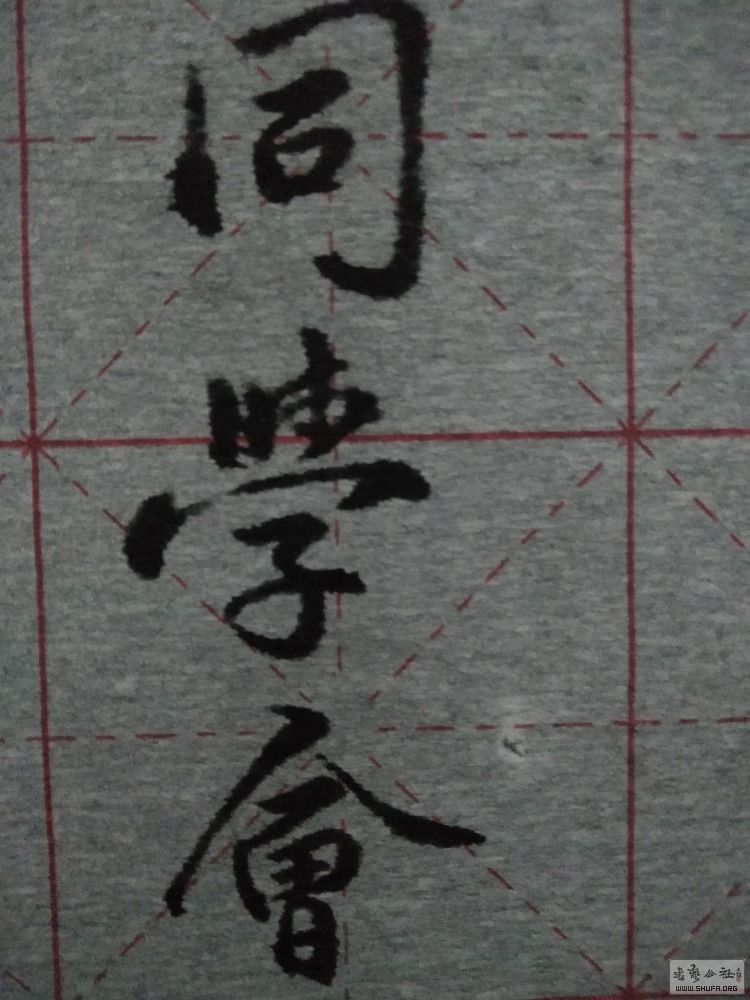 同學會
書藝公社
WWW.SHUFA.ORG